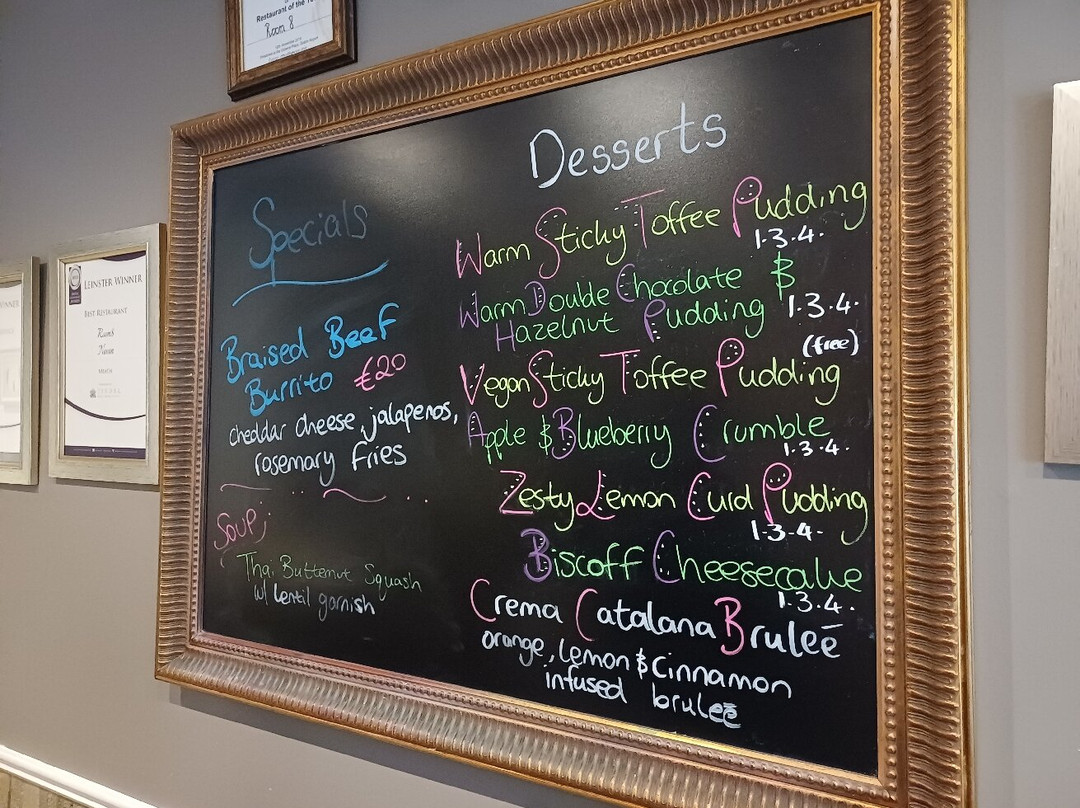 Restaurant of the
Room 8
LEINSTER WINNER
BEST RESTAURANT
Specials
Braised Beef
Burrito €20
cheddar cheese, jalapenos,
rosemary fries
Soup;
Thai Butternut Squash
w/ lentil garnish
Desserts
Warm Sticky Toffee Pudding
1.3.4.
Warm Double Chocolate &
Hazelnut Pudding 1.3.4.
(free)
Vegan Sticky Toffee Pudding
Apple & Blueberry Crumble
1.3.4.
Zesty Lemon Curd Pudding
1.3.4.
Biscoff Cheesecake
1.3.4.
Crema Catalana Brulee
orange, lemon & cinnamon
infused brulee